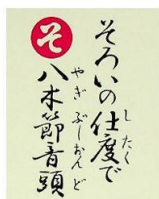 そ
そろいの仕度で
したく
八木節音頭
やぎぶしおんど